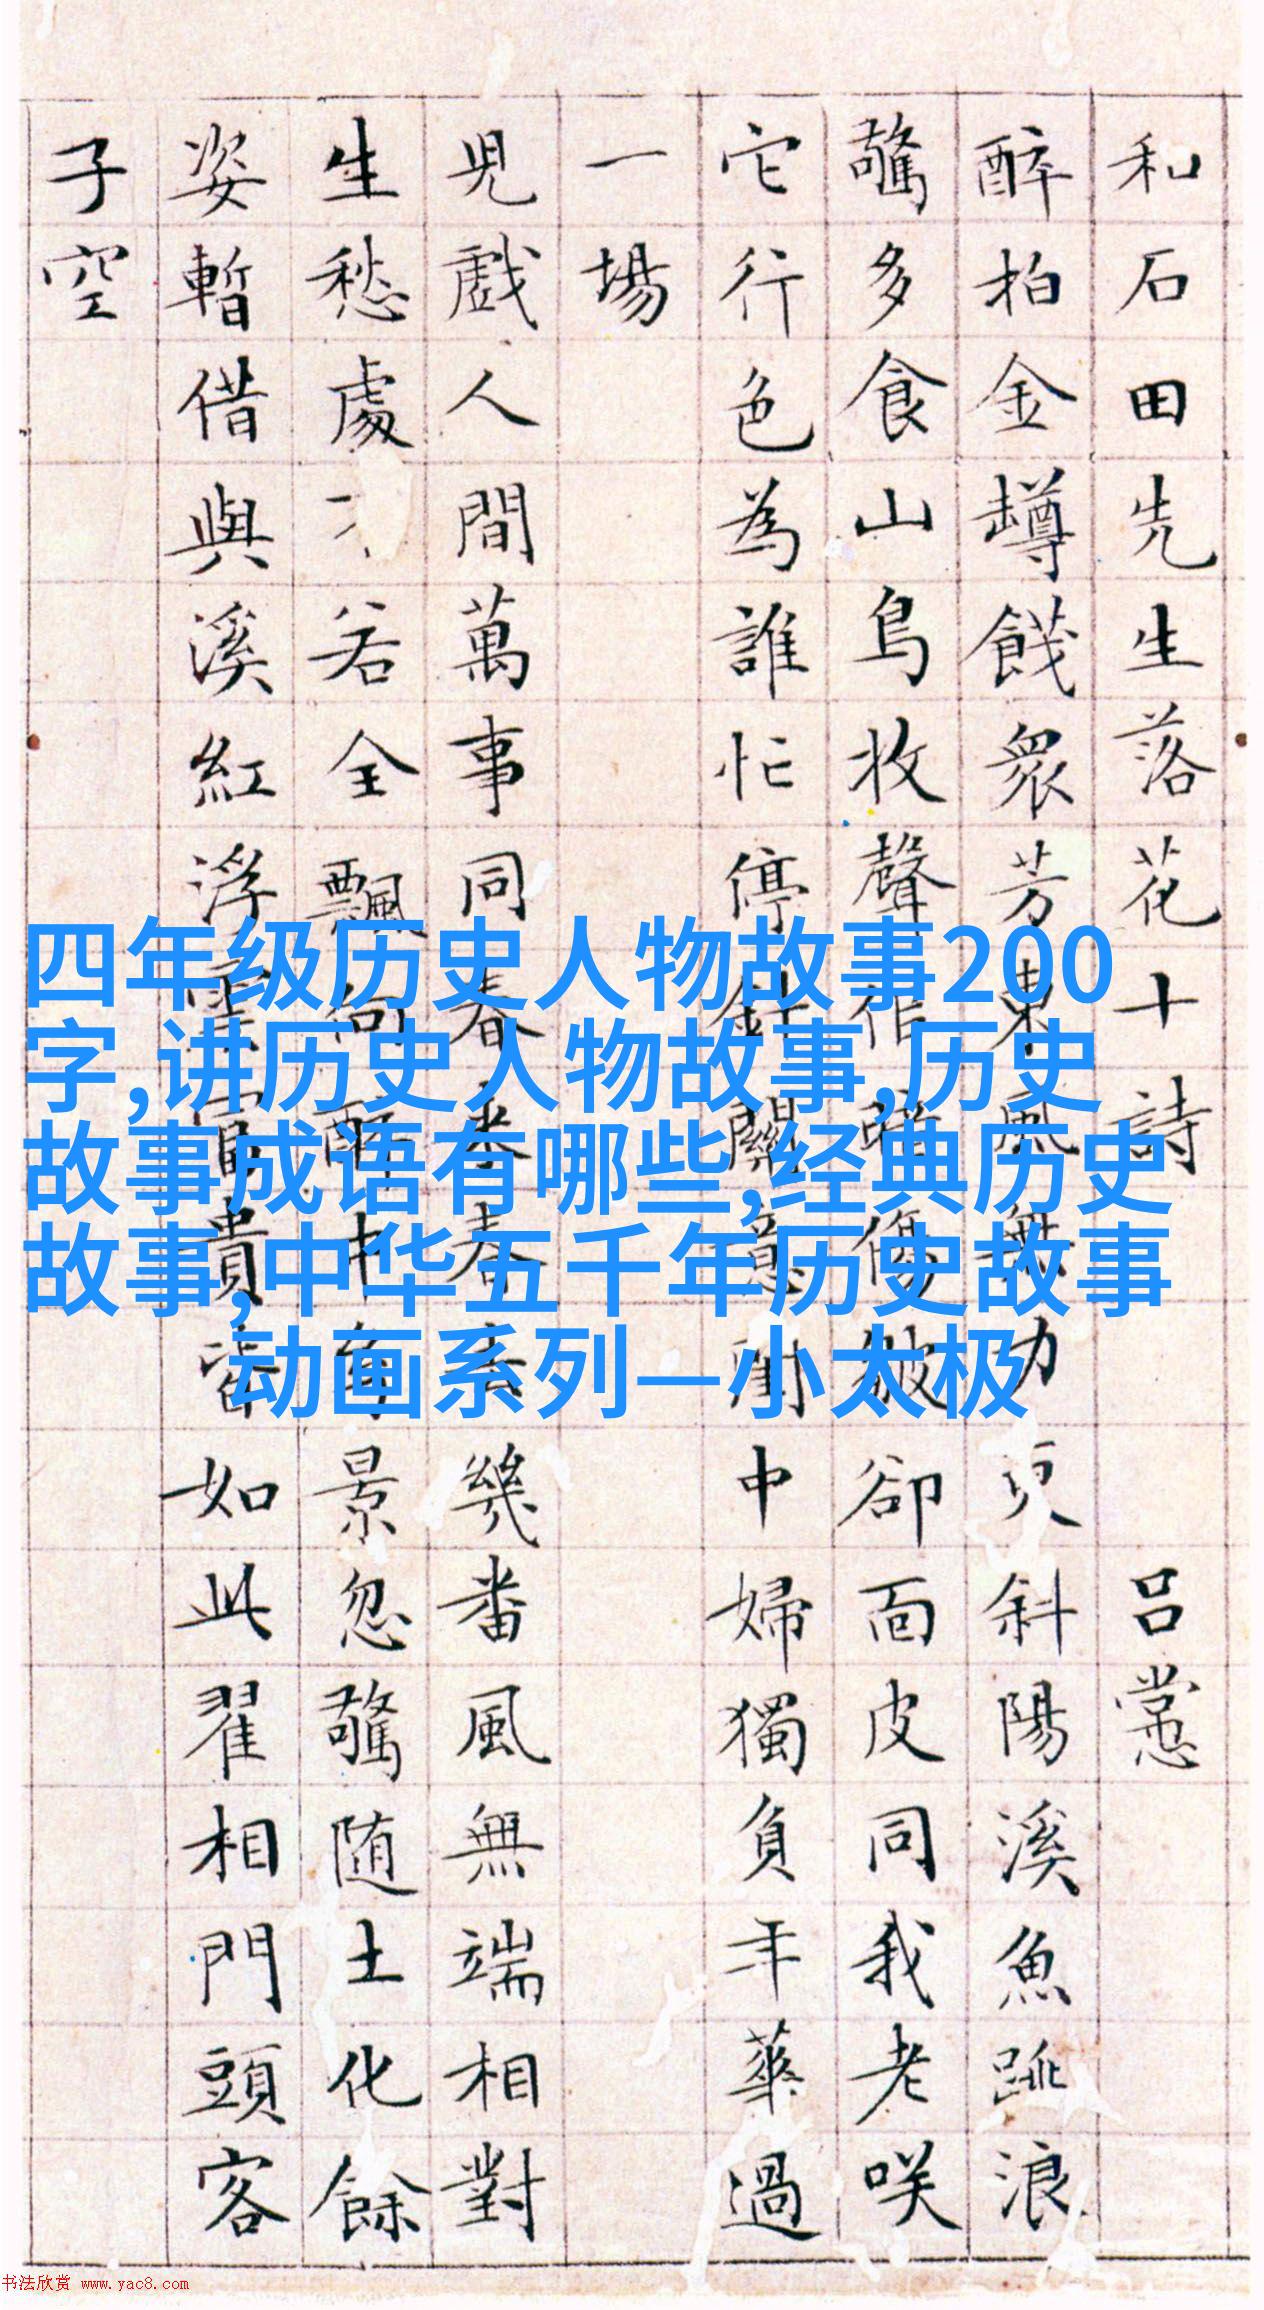 和石田先生落花十詩 吕㦂
醉拍金罇餞衆芳東風無力更斜陽溪魚跳浪
驚多食山鳥收聲作傷皱卻面皮同我老咲
它行色為誰忙停針關意閨中婦獨負年華過
一場
兒戲人間萬事同春來春去幾番風無端相對
生愁處若全飄向醉中景忽驚随土化餘
姿暫借與溪紅浮雲富貴皆如此翟相門頭客
子空
四年级历史人物故事200
字,讲历史人物故事,历史
故事成语有哪些,经典历史
故事,中华五千年历史故事
动画系列—小太极
书法欣赏 www.yac8.com